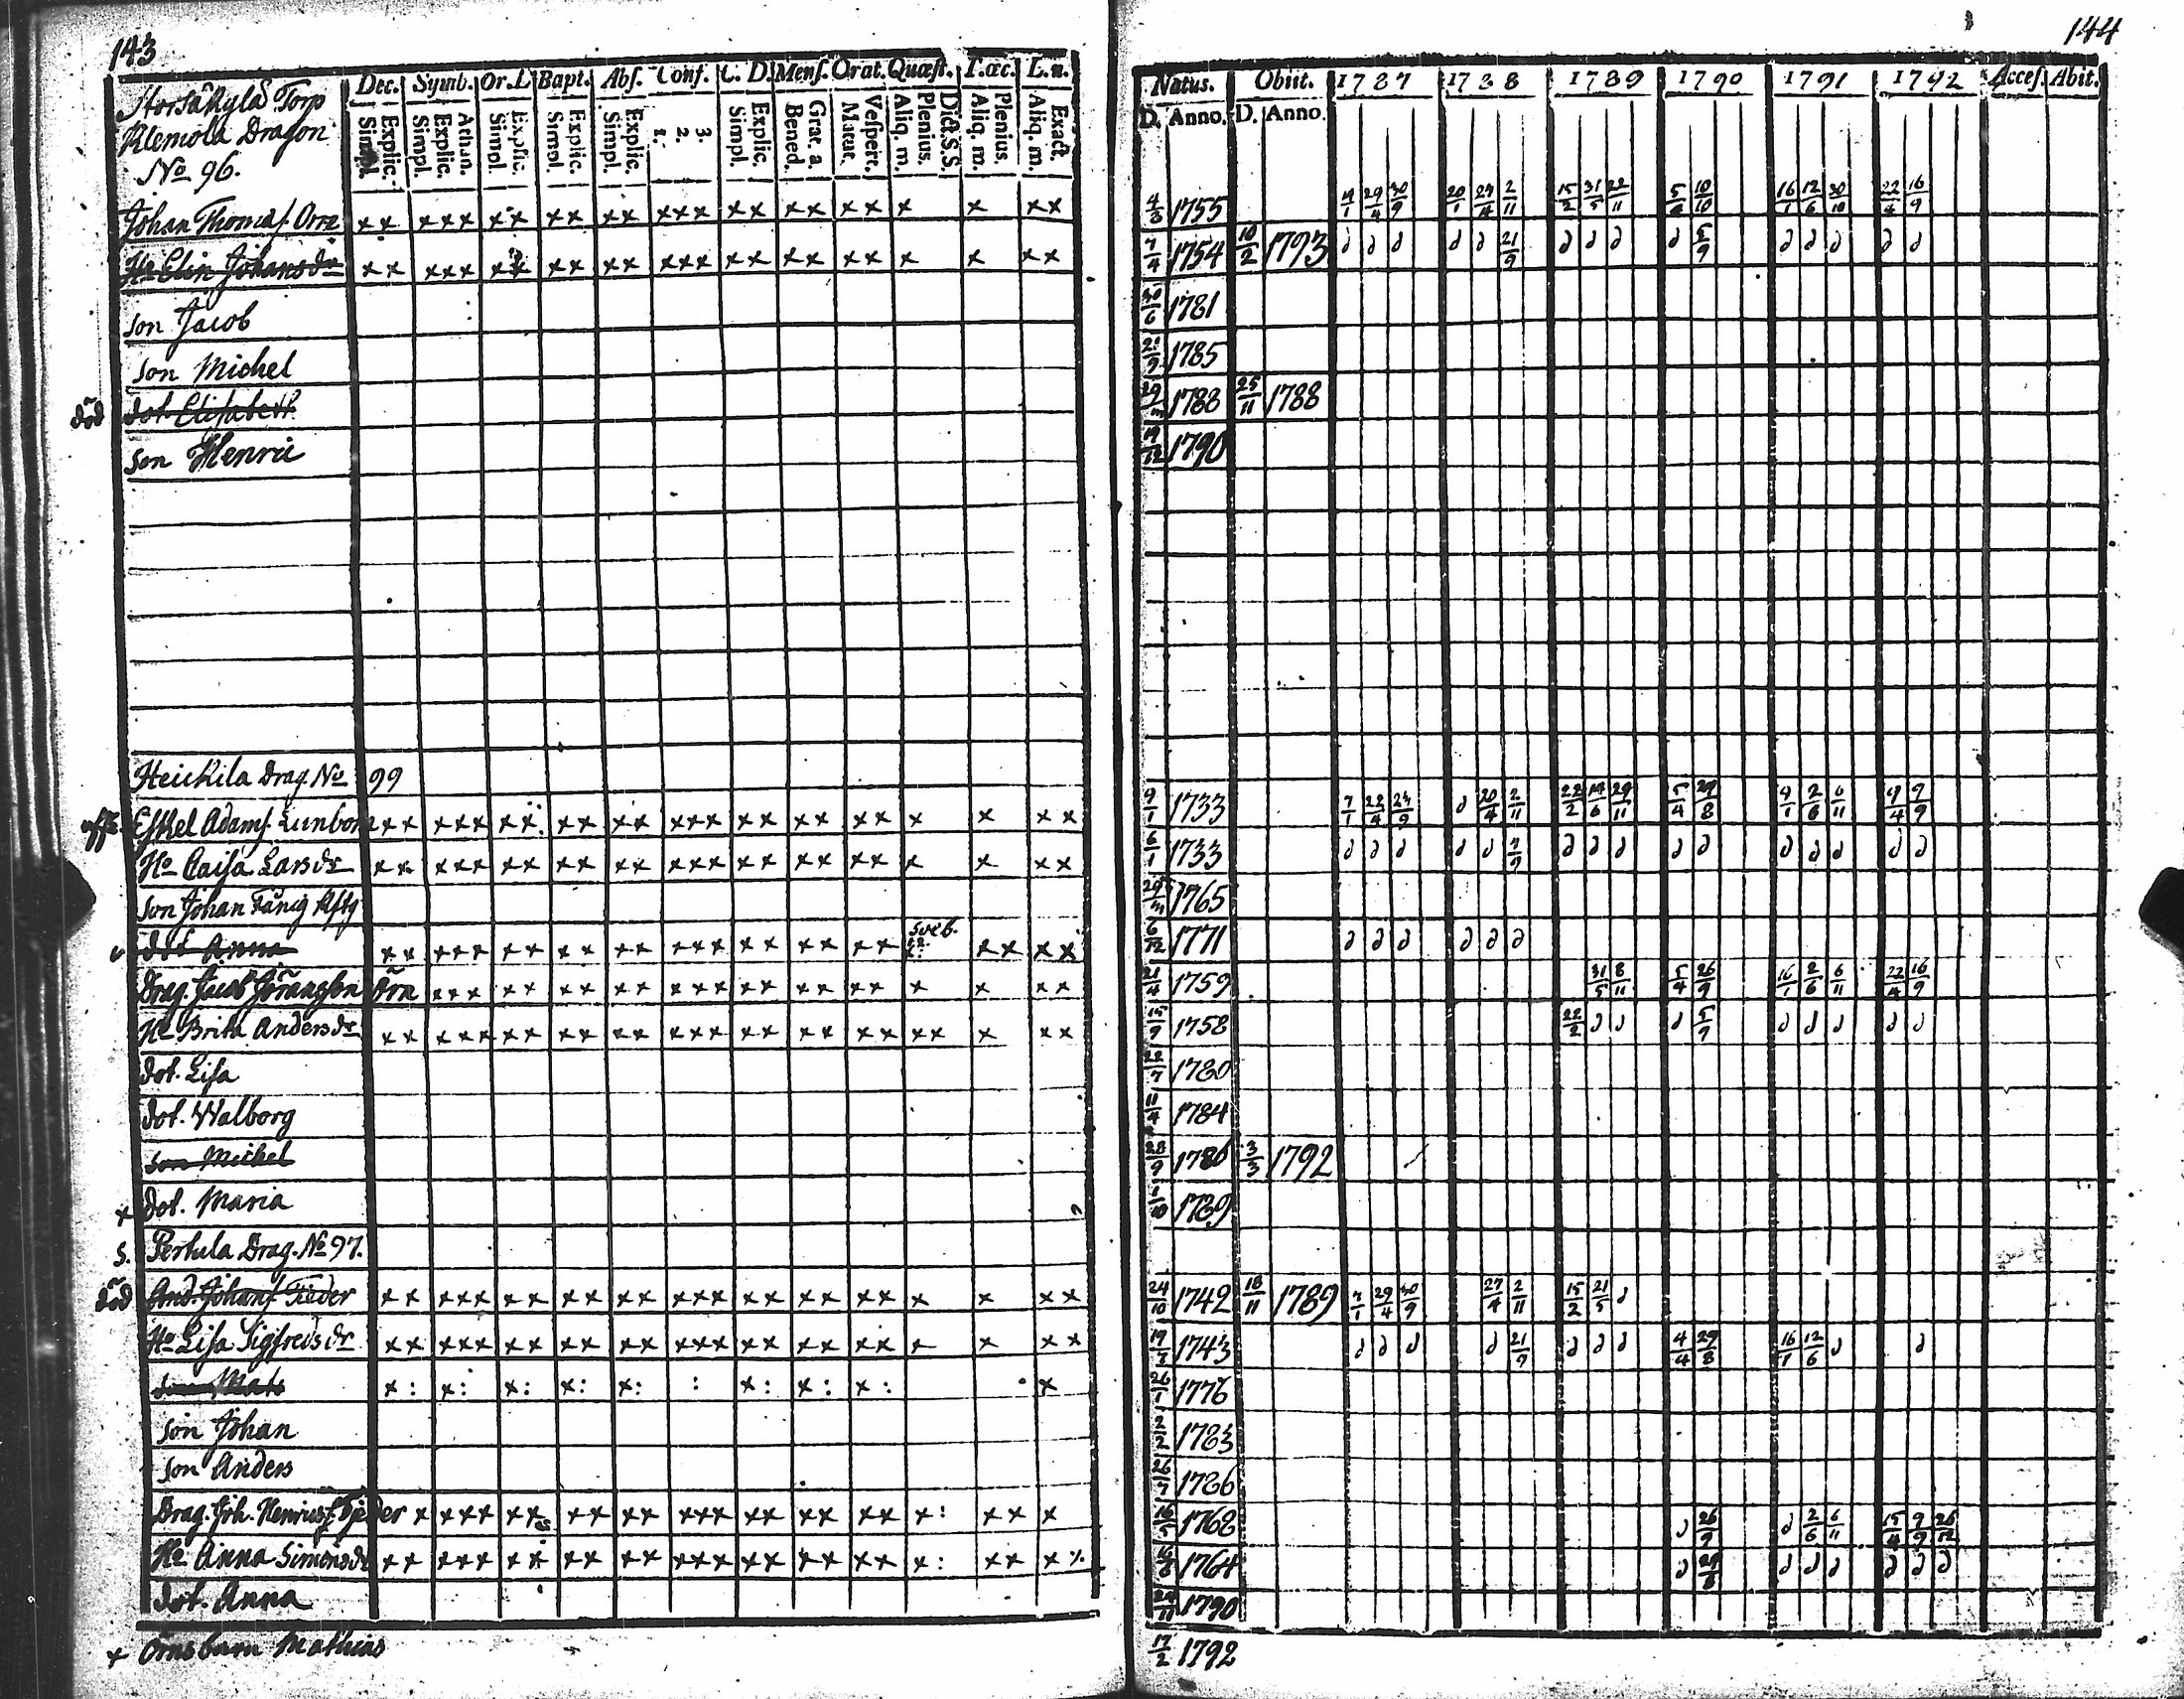 143
Dec. Symb. Or. L. Bapt. Abs. Conf. C. D. Mens. Orat. Quæst. T. œc. L. n.
Explic. Simpl. Ath. m. Explic. Simpl. Explic. Simpl. Explic. Simpl. Explic. Simpl. 3. 2. 1. Explic. Simpl. Grat. a. Bened. Vespert. Matut. Dict. S. S. Plenius. Aliq. m. Plenius. Aliq. m. Exact. Aliq. m.
Torp
Klemola Dragon
No 96.
Johan Thomas. Orre ×× ××× ×× ×× ×× ××× ×× ×× ×× × × ××
Hu Elin Johansdr ×× ××× ×× ×× ×× ××× ×× ×× ×× × × ××
son Jacob
son Michel
död dot. Elisabeth
son Henric
Heickila Drag. No 99
Eskel Adams. Lunbom ×× ××× ×× ×× ×× ××× ×× ×× ×× × × ××
Hu Caisa Larsdr ×× ××× ×× ×× ×× ××× ×× ×× ×× × × ××
son Johan
dot Anna ×× ××× ×× ×× ×× ××× ×× ×× ×× sveb. ×× ××
Drag. Jacob Göransson Örn ××× ×× ×× ×× ××× ×× ×× ×× × × ××
Hu Brita Andersdr ×× ××× ×× ×× ×× ××× ×× ×× ×× ×× × ××
dot. Lisa
dot. Walborg
son Michel
× dot. Maria
s. Pertula Drag. No 97.
död And. Johans. Fieder ×× ××× ×× ×× ×× ××× ×× ×× ×× × × ××
Hu Lisa Sigfredsdr ×× ××× ×× ×× ×× ××× ×× ×× ×× × × ××
son Mats ×: ×: ×: ×: ×: : ×: ×: ×: ×
son Johan
son Anders
Drag. Joh. Henrics. Fjeder × ××× ×× ×× ×× ××× ×× ×× ×× ×: ×× ×
Hu Anna Simonsdr ×× ××× ×× ×× ×× ××× ×× ×× ×× ×: ×× ×
dot. Anna
× Örns barn Mathias
144
Natus. Obiit. 1787 1788 1789 1790 1791 1792 Acces. Abit.
D. Anno. D. Anno.
4/3 1755 29/4 30/9 20/1 2/11 15/2 31/5 22/11 10/10 16/1 12/6 30/10 22/4 16/9
7/4 1754 10/2 1793 d d d d d 21/9 d d d d 5/9 d d d d d
30/6 1781
21/9 1785
29/m 1788 25/11 1788
19/12 1790
9/1 1733 7/1 22/4 24/9 d 20/4 2/11 22/2 14/6 29/11 5/4 29/8 9/1 2/6 6/11 9/4 9/9
6/1 1733 d d d d d 7/9 d d d d d d d d d d
1765
6/12 1771 d d d d d d
21/4 1759 31/5 8/11 5/4 26/9 16/1 2/6 6/11 22/4 16/9
15/9 1758 22/2 d d d 5/9 d d d d d
22/7 1780
11/4 1784
28/9 1786 3/3 1792
1789
24/10 1742 18/11 1789 7/1 29/4 30/9 27/4 2/11 15/2 21/5 d
1743 d d d d 21/9 d d d 4/4 29/8 16/1 12/6 d d
1776
2/2 1783
26/7 1786
16/5 1768 d 26/9 d 2/6 6/11 15/4 9/9 26/12
1764 d 29/8 d d d d d d
1790
17/2 1792